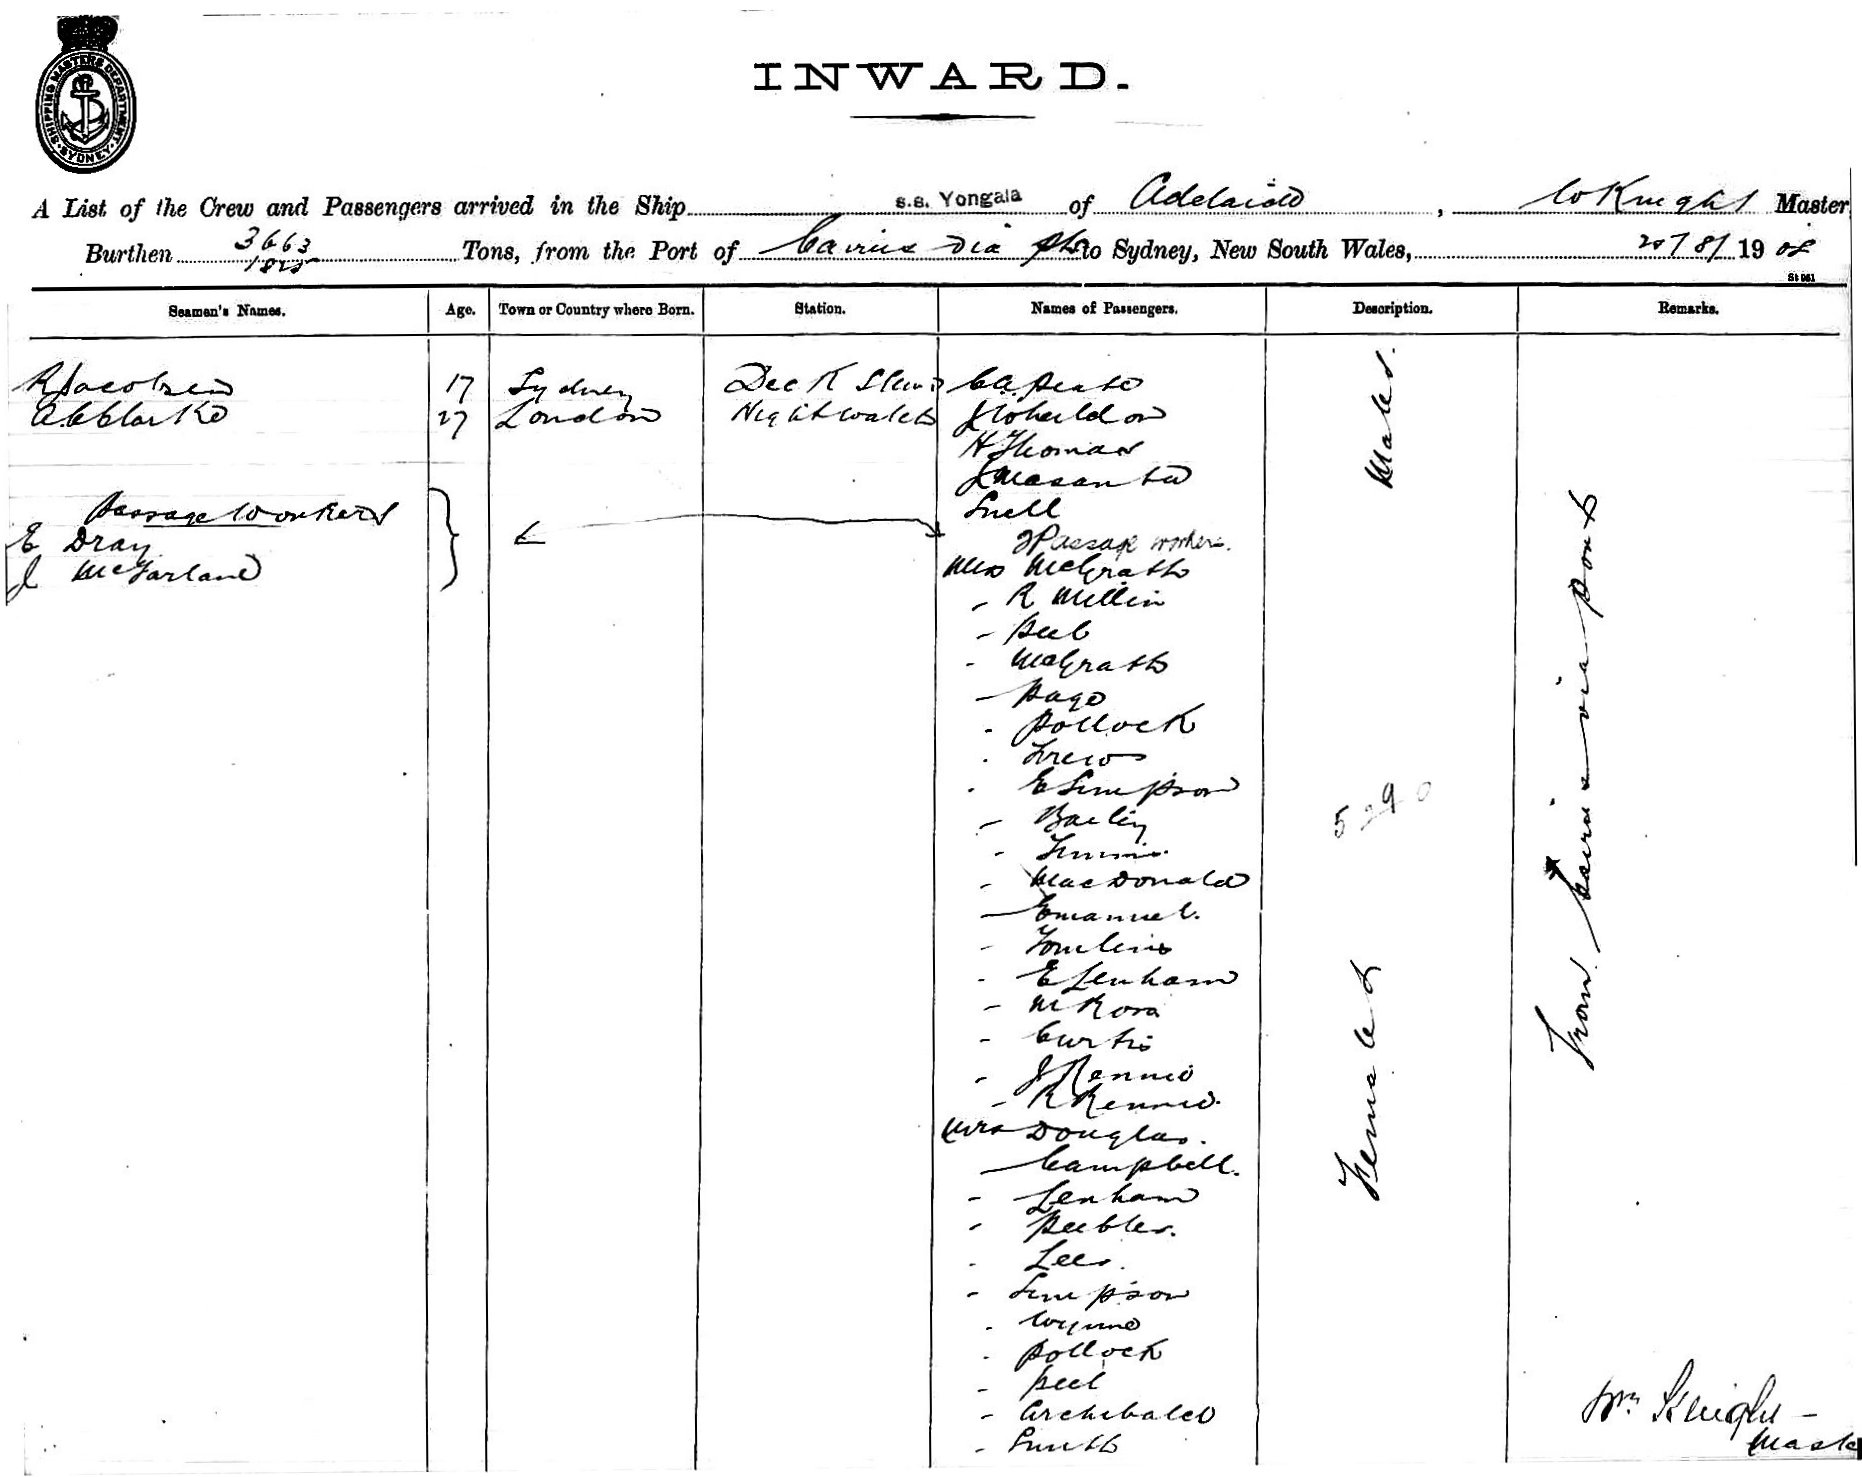 SHIPPING MASTERS DEPARTMENT SYDNEY
INWARD.
A List of the Crew and Passengers arrived in the Ship s.s. Yongala of Adelaide, W Knight Master
Burthen 3663 Tons, from the Port of Cairns via to Sydney, New South Wales, 20/8/1908
1825
St 061
Seamen's Names. Age. Town or Country where Born. Station. Names of Passengers. Description. Remarks.
R Jacobsen 17 Sydney Deck Males.
A C Clarke 27 London Nightwatch J Wheildon
H Thomas
J
Passage Workers Snell
E Dray 2 Passage workers.
J McFarland Miss McGrath
- R Millin
- Peel
- McGrath
- Page
- Pollock
- Frew
- E Simpson
- Bailey
-
- MacDonald
- Emanuel.
- Tomlins
- E Lenham
- M Ross
- Curtis
- J Rennie
- R Rennie
Mrs Douglas.
- Campbell.
- Lenham
- Peebles.
- Lees.
- Simpson
- Wynne
- Pollock
- Peel
- Archibald
- Smith
Females
From Cairns via ports
Wm Knight -
Master